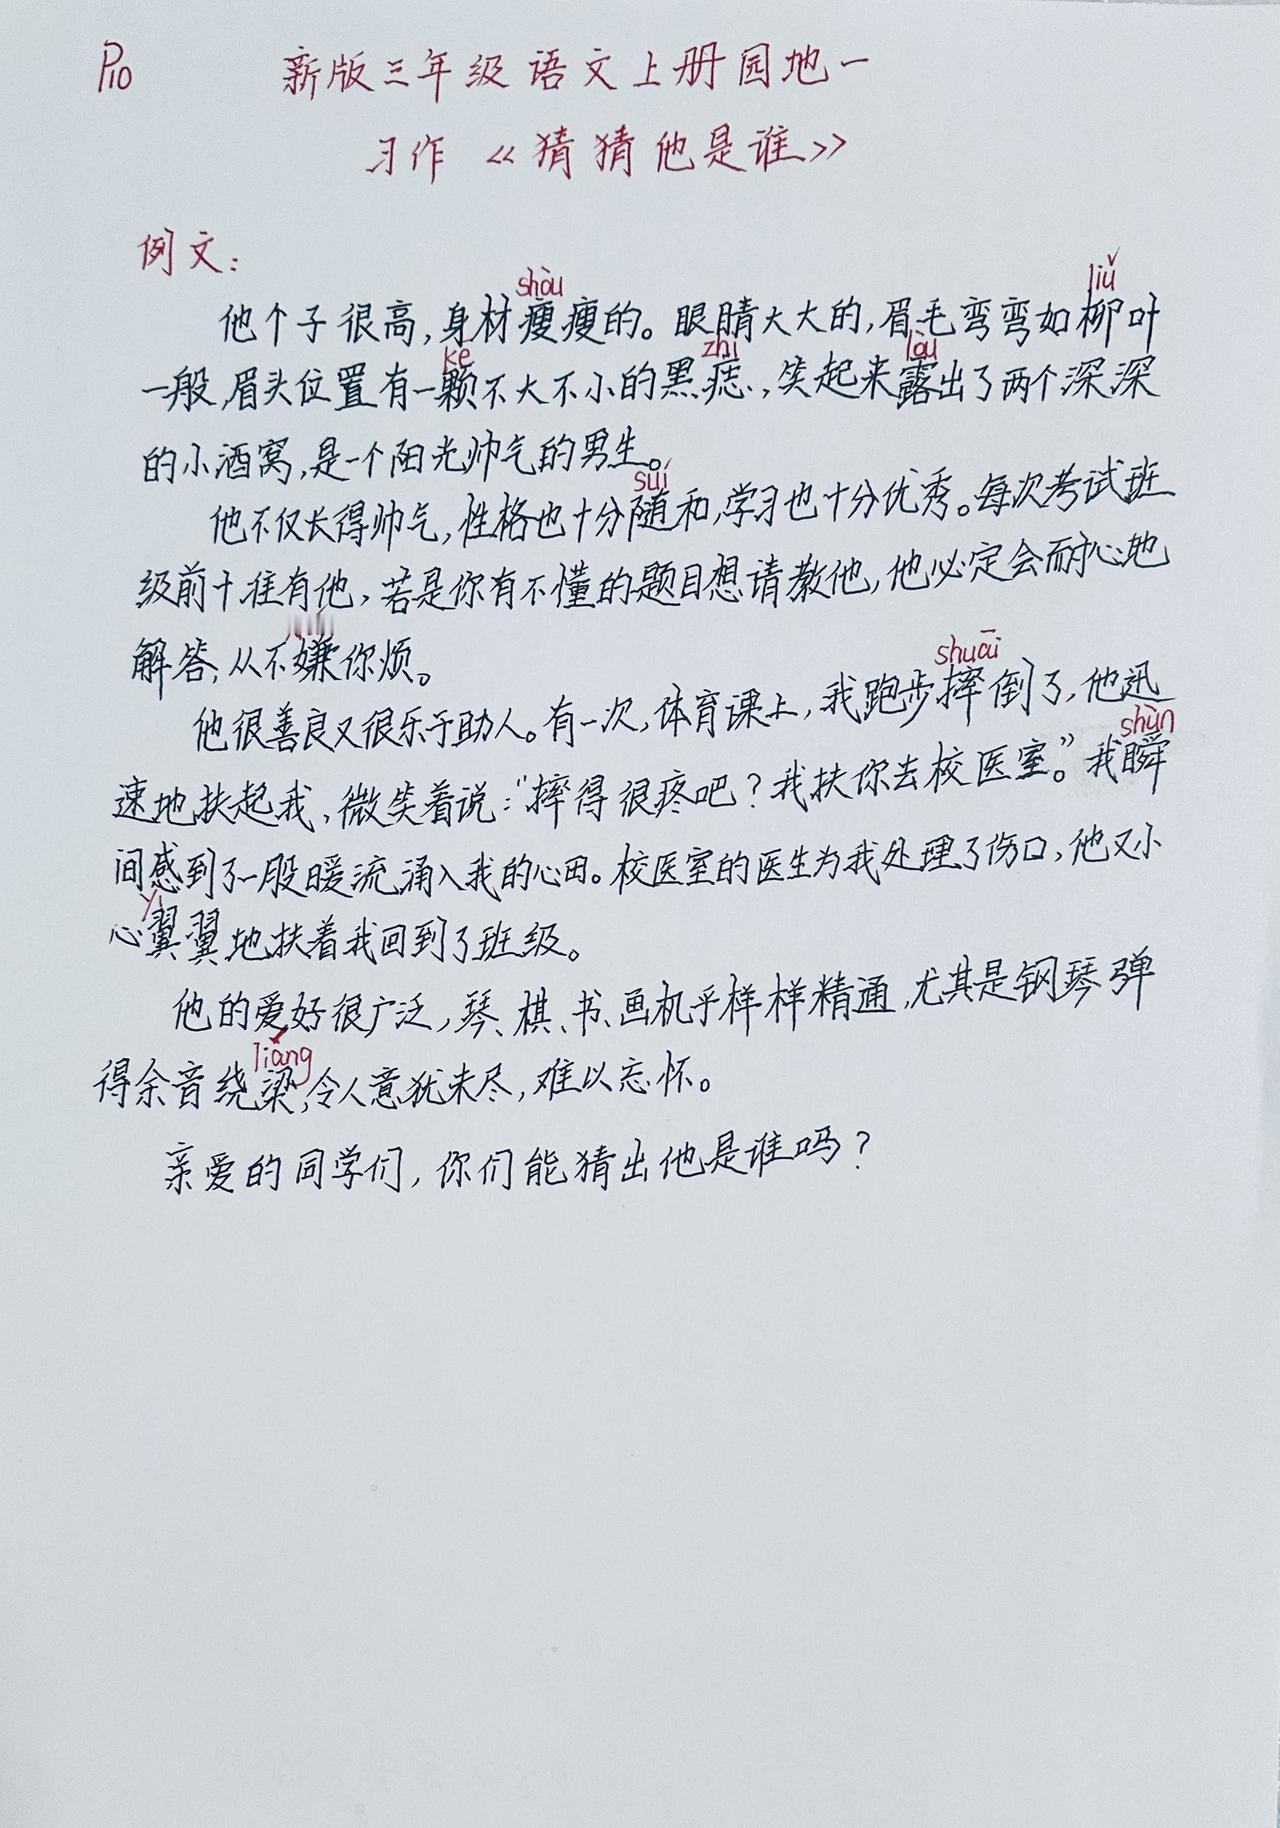 P10 新版三年级语文上册园地一
习作《猜猜他是谁》
例文：
shòu liǔ
他个子很高，身材瘦瘦的。眼睛大大的，眉毛弯弯如柳叶
kē zhì lòu
一般，眉头位置有一颗不大不小的黑痣，笑起来露出了两个深深
的小酒窝，是一个阳光帅气的男生。
suí
他不仅长得帅气，性格也十分随和，学习也十分优秀。每次考试班
级前十准有他，若是你有不懂的题目想请教他，他必定会耐心地
解答，从不嫌你烦。
shuāi
他很善良又很乐于助人。有一次，体育课上，我跑步摔倒了，他迅
shùn
速地扶起我，微笑着说：“摔得很疼吧？我扶你去校医室。”我瞬
间感到了一股暖流涌入我的心田。校医室的医生为我处理了伤口，他又小
yì
心翼翼地扶着我回到了班级。
他的爱好很广泛，琴、棋、书、画机乎样样精通，尤其是钢琴弹
liáng
得余音绕梁，令人意犹未尽，难以忘怀。
亲爱的同学们，你们能猜出他是谁吗？